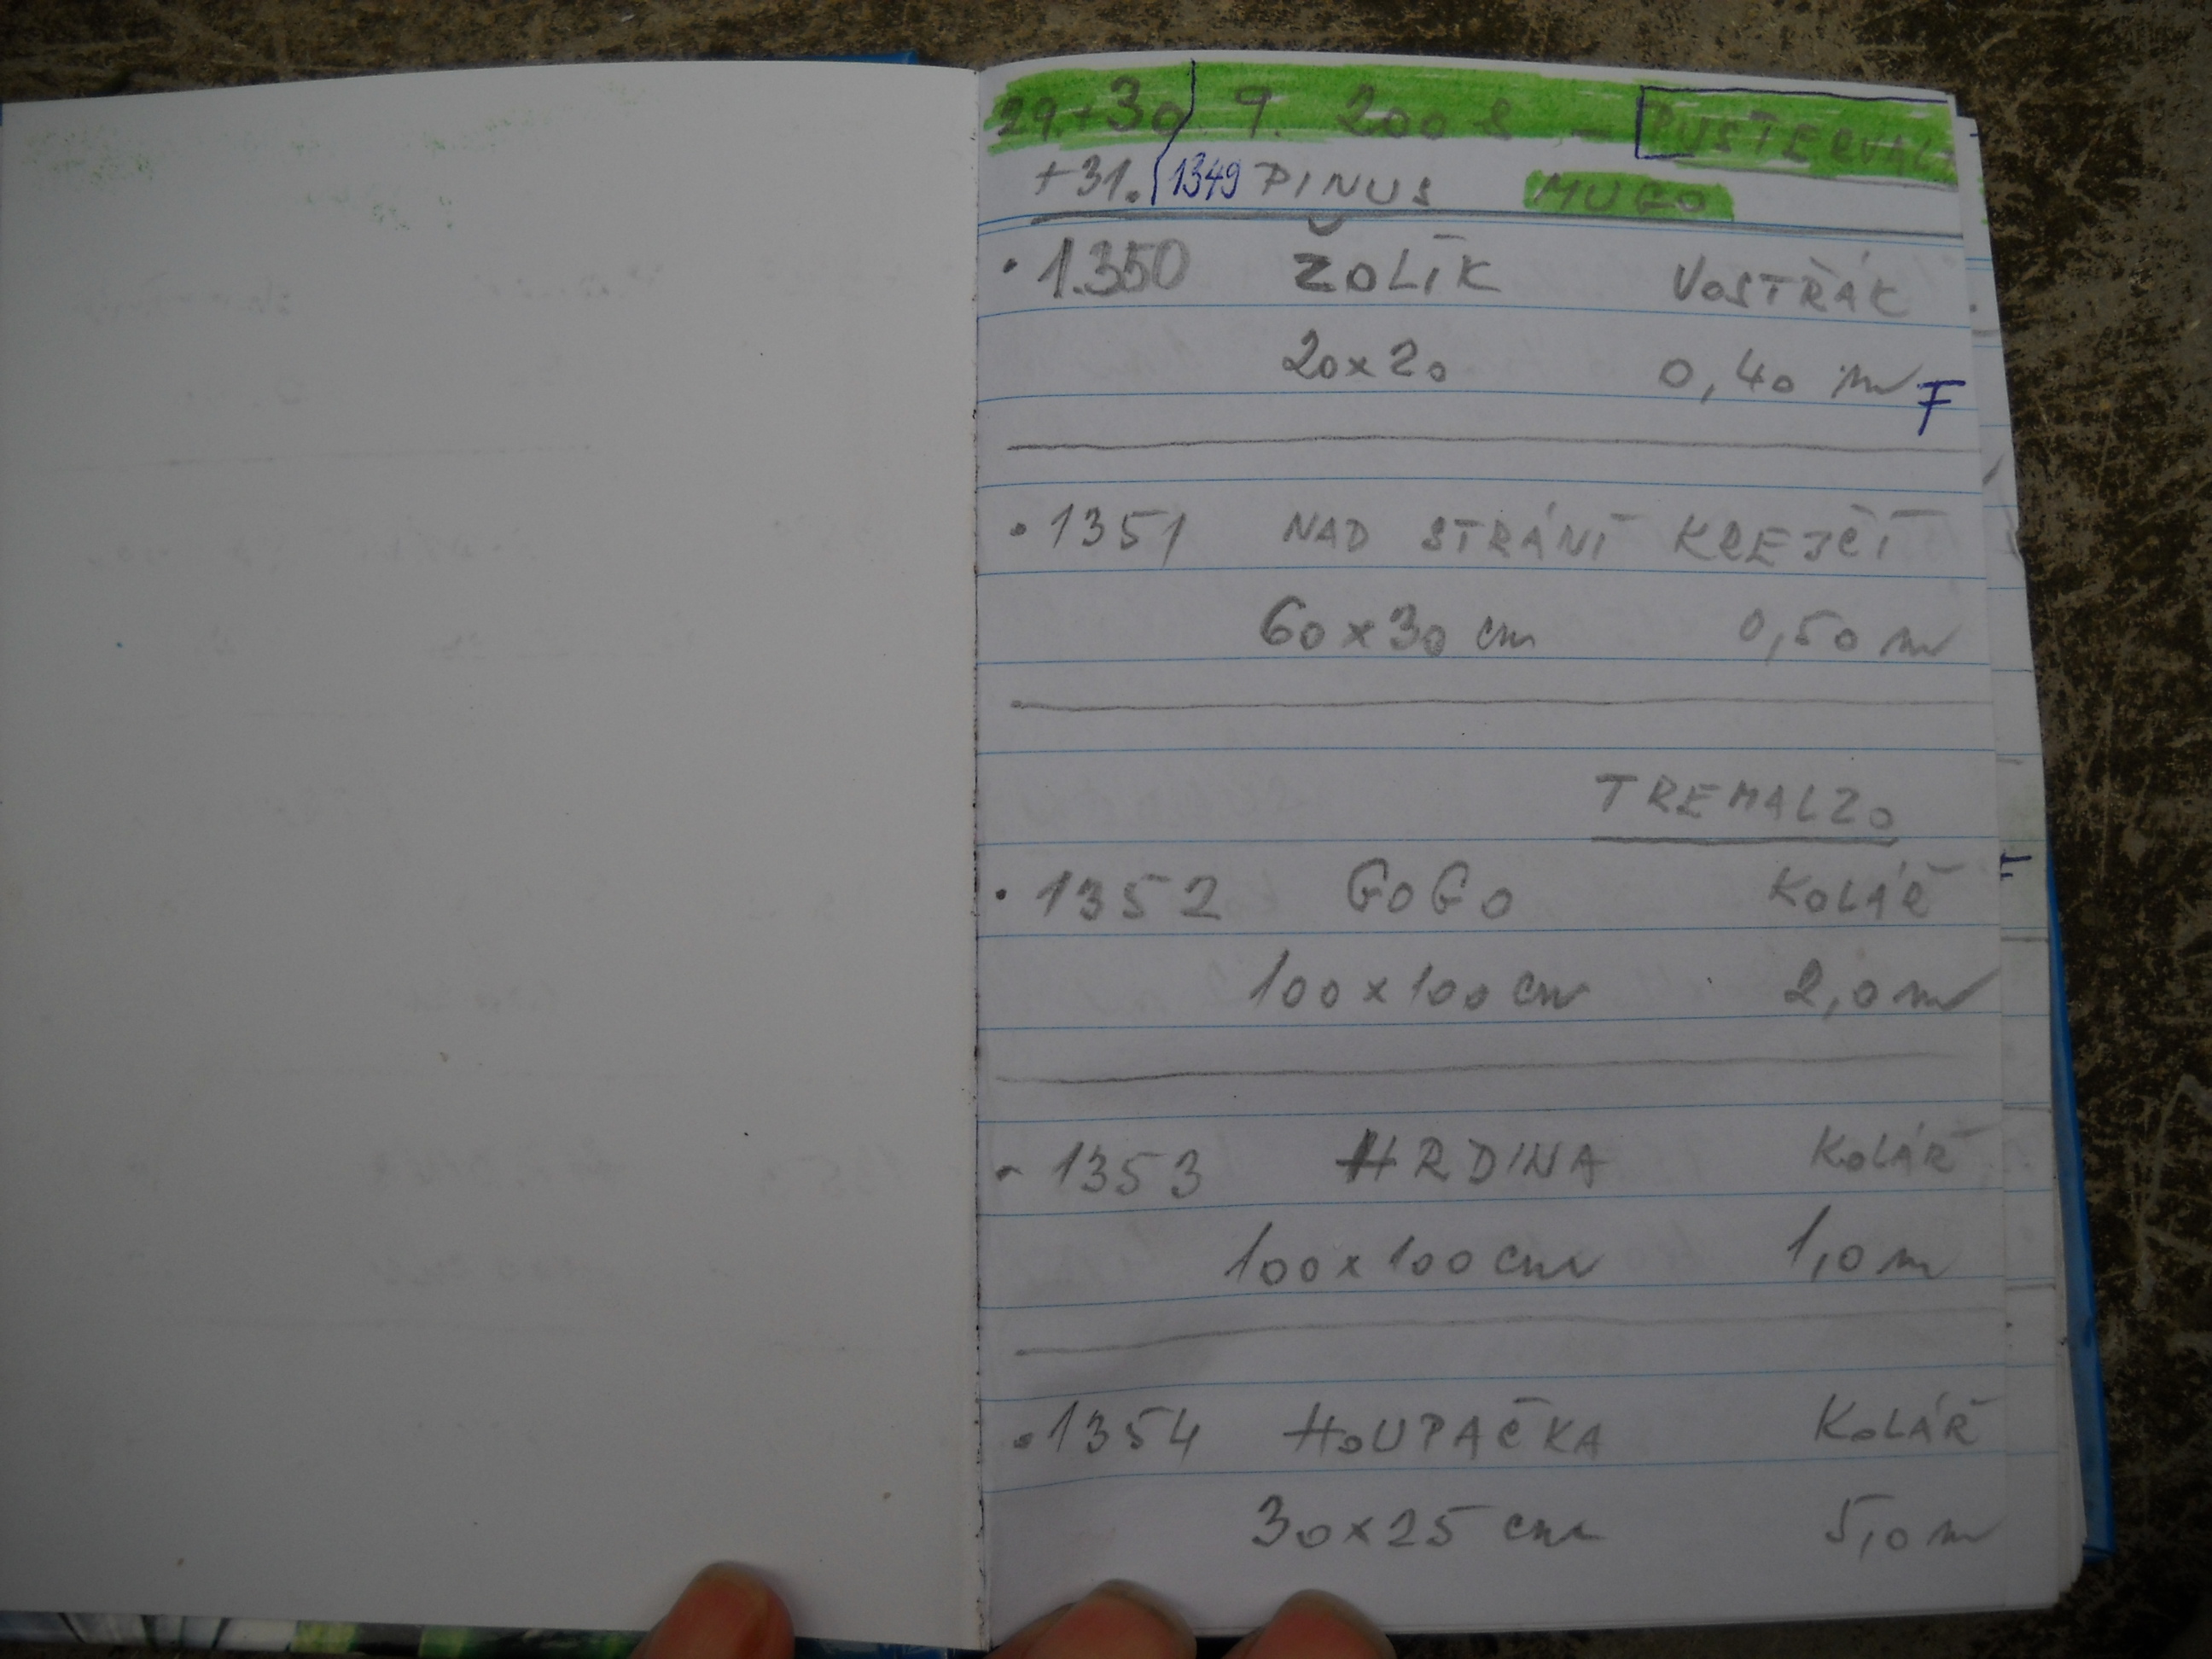 29.+30. 9. 2008 - PUSTERVALD
+31. 1349 PINUS MUGO
• 1.350 ŽOLÍK VOSTŘÁK
20x20 0,40 m F
• 1351 NAD STRÁNÍ KREJČÍ
60x30 cm 0,50 m
TREMALZO
• 1352 GOGO KOLÁŘ
100x100 cm 2,0 m
- 1353 HRDINA KOLÁŘ
100x100 cm 1,0 m
• 1354 HOUPAČKA KOLÁŘ
30x25 cm 5,0 m